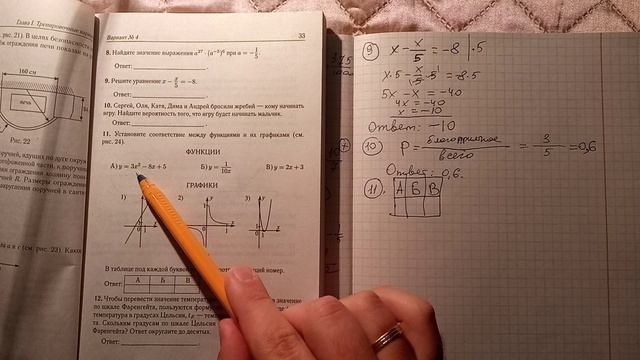 Глава I. Тренировочные
рис. 21). В целях безопасности
ограждения печи показан на
160 см
печь
Рис. 22
Вариант № 4
33
8. Найдите значение выражения
при a =
Ответ:
9. Решите уравнение x − x/5 = −8.
Ответ:
10. Сергей, Оля, Катя, Дима и Андрей бросили жребий — кому начинать
игру. Найдите вероятность того, что игру будет начинать мальчик.
Ответ:
11. Установите соответствие между функциями и их графиками (см.
рис. 24).
ФУНКЦИИ
А) y = 3x² − 8x + 5 Б) y = 1/10x В) y = 2x + 3
ГРАФИКИ
1) 2) 3)
В таблице под каждой
номер.
Ответ: А Б В
12. Чтобы перевести значение температуры
значение
по шкале Фаренгейта, пользуются
температура в градусах Цельсия,
Скольким градусам по шкале Цельсия
Фаренгейта? Ответ округлите до десятых.
Ответ:
9) x − x/5 = −8 | · 5
x · 5 − x/5 · 5 = −8 · 5
5x − x = −40
4x = −40
x = −10
Ответ: −10
10) P = благоприятное/всего = 3/5 = 0,6
Ответ: 0,6.
11) А Б В